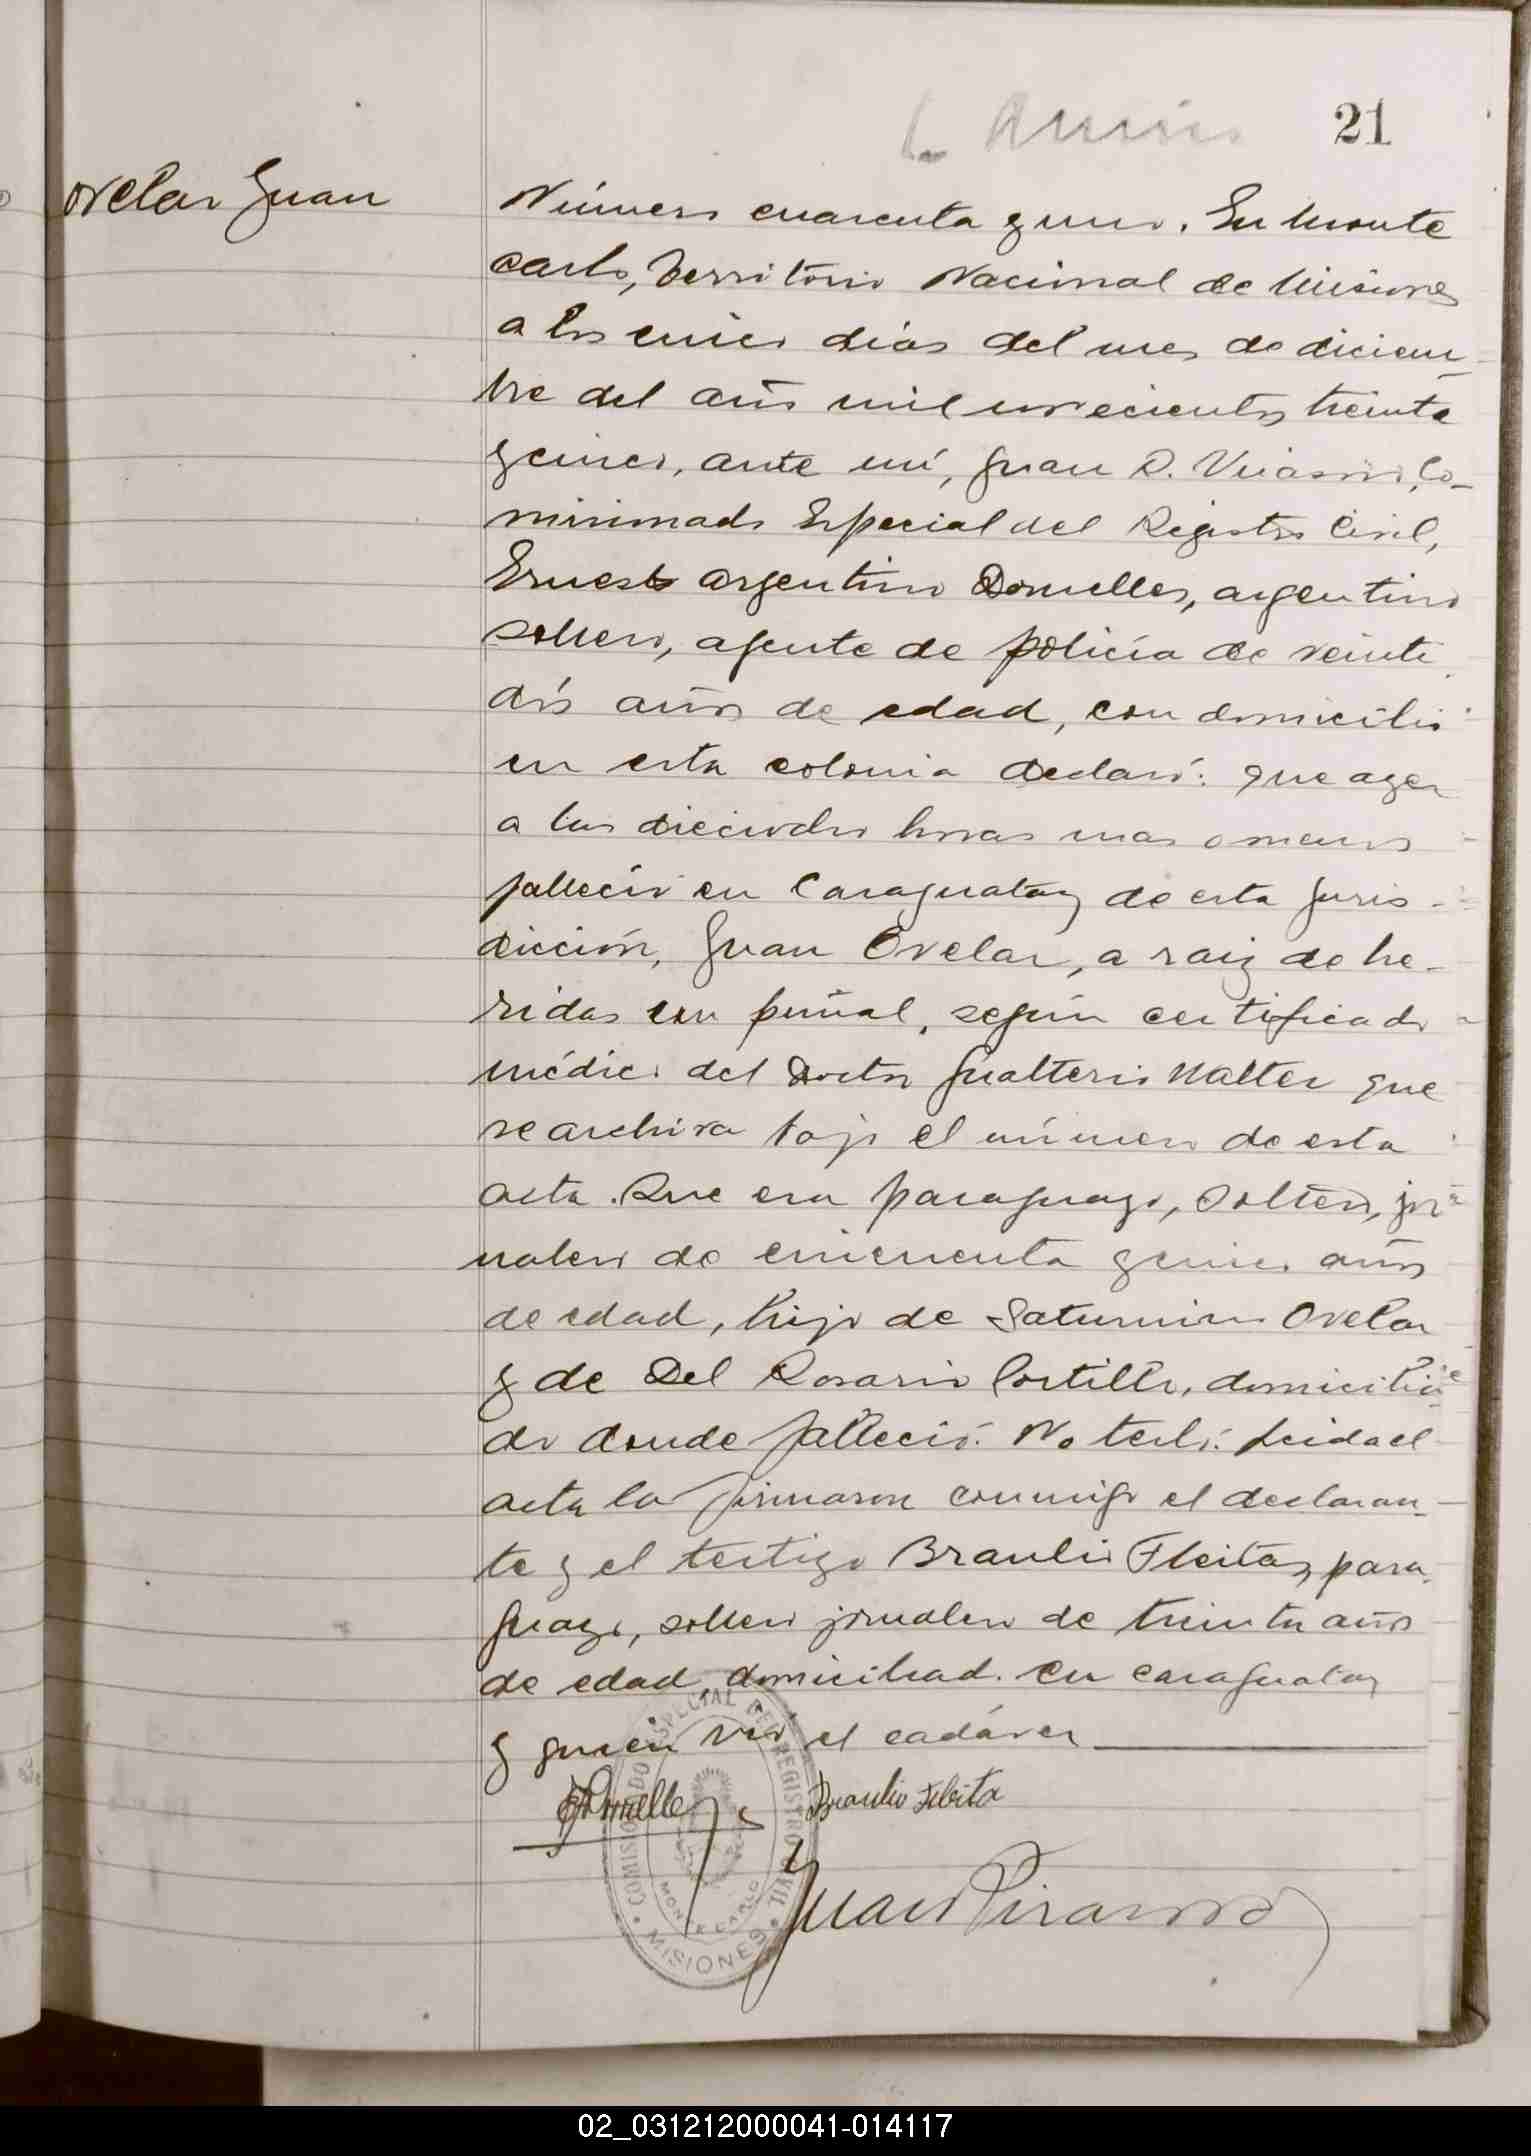 21
Ovelar Juan
Número cuarenta y uno. En Monte
carlo, Territorio Nacional de Misiones
a los cinco dias del mes de diciem-
bre del año mil novecientos treinta
y cinco, ante mí, Juan D. Virasoro, Co-
misionado Especial del Registro Civil,
Ernesto Argentino Dornelles, argentino
soltero, agente de policía de veinti
dós años de edad, con domicilio
en esta colonia declaró: que ayer
a las dieciocho horas mas o menos
falleció en Caraguatay de esta juris-
dicción, Juan Ovelar, a raiz de he-
ridas con puñal, según certificado
médico del Doctor Gualterio Walter que
se archiva bajo el número de esta
acta. Que era paraguayo, soltero, jor
nalero de cincuenta y cinco años
de edad, hijo de Saturnino Ovelar
y de Del Rosario Portillo, domicilia
do donde falleció. No testó. Leida el
acta la firmaron conmigo el declaran-
te y el testigo Braulio Fleitas, para
guayo, soltero jornalero de treinta años
de edad, domiciliado en Caraguatay
y quien vió el cadáver
Braulio Fleita
Juan Virasoro
COMISIONADO ESPECIAL DEL REGISTRO CIVIL
MONTE CARLO
MISIONES
02_031212000041-014117